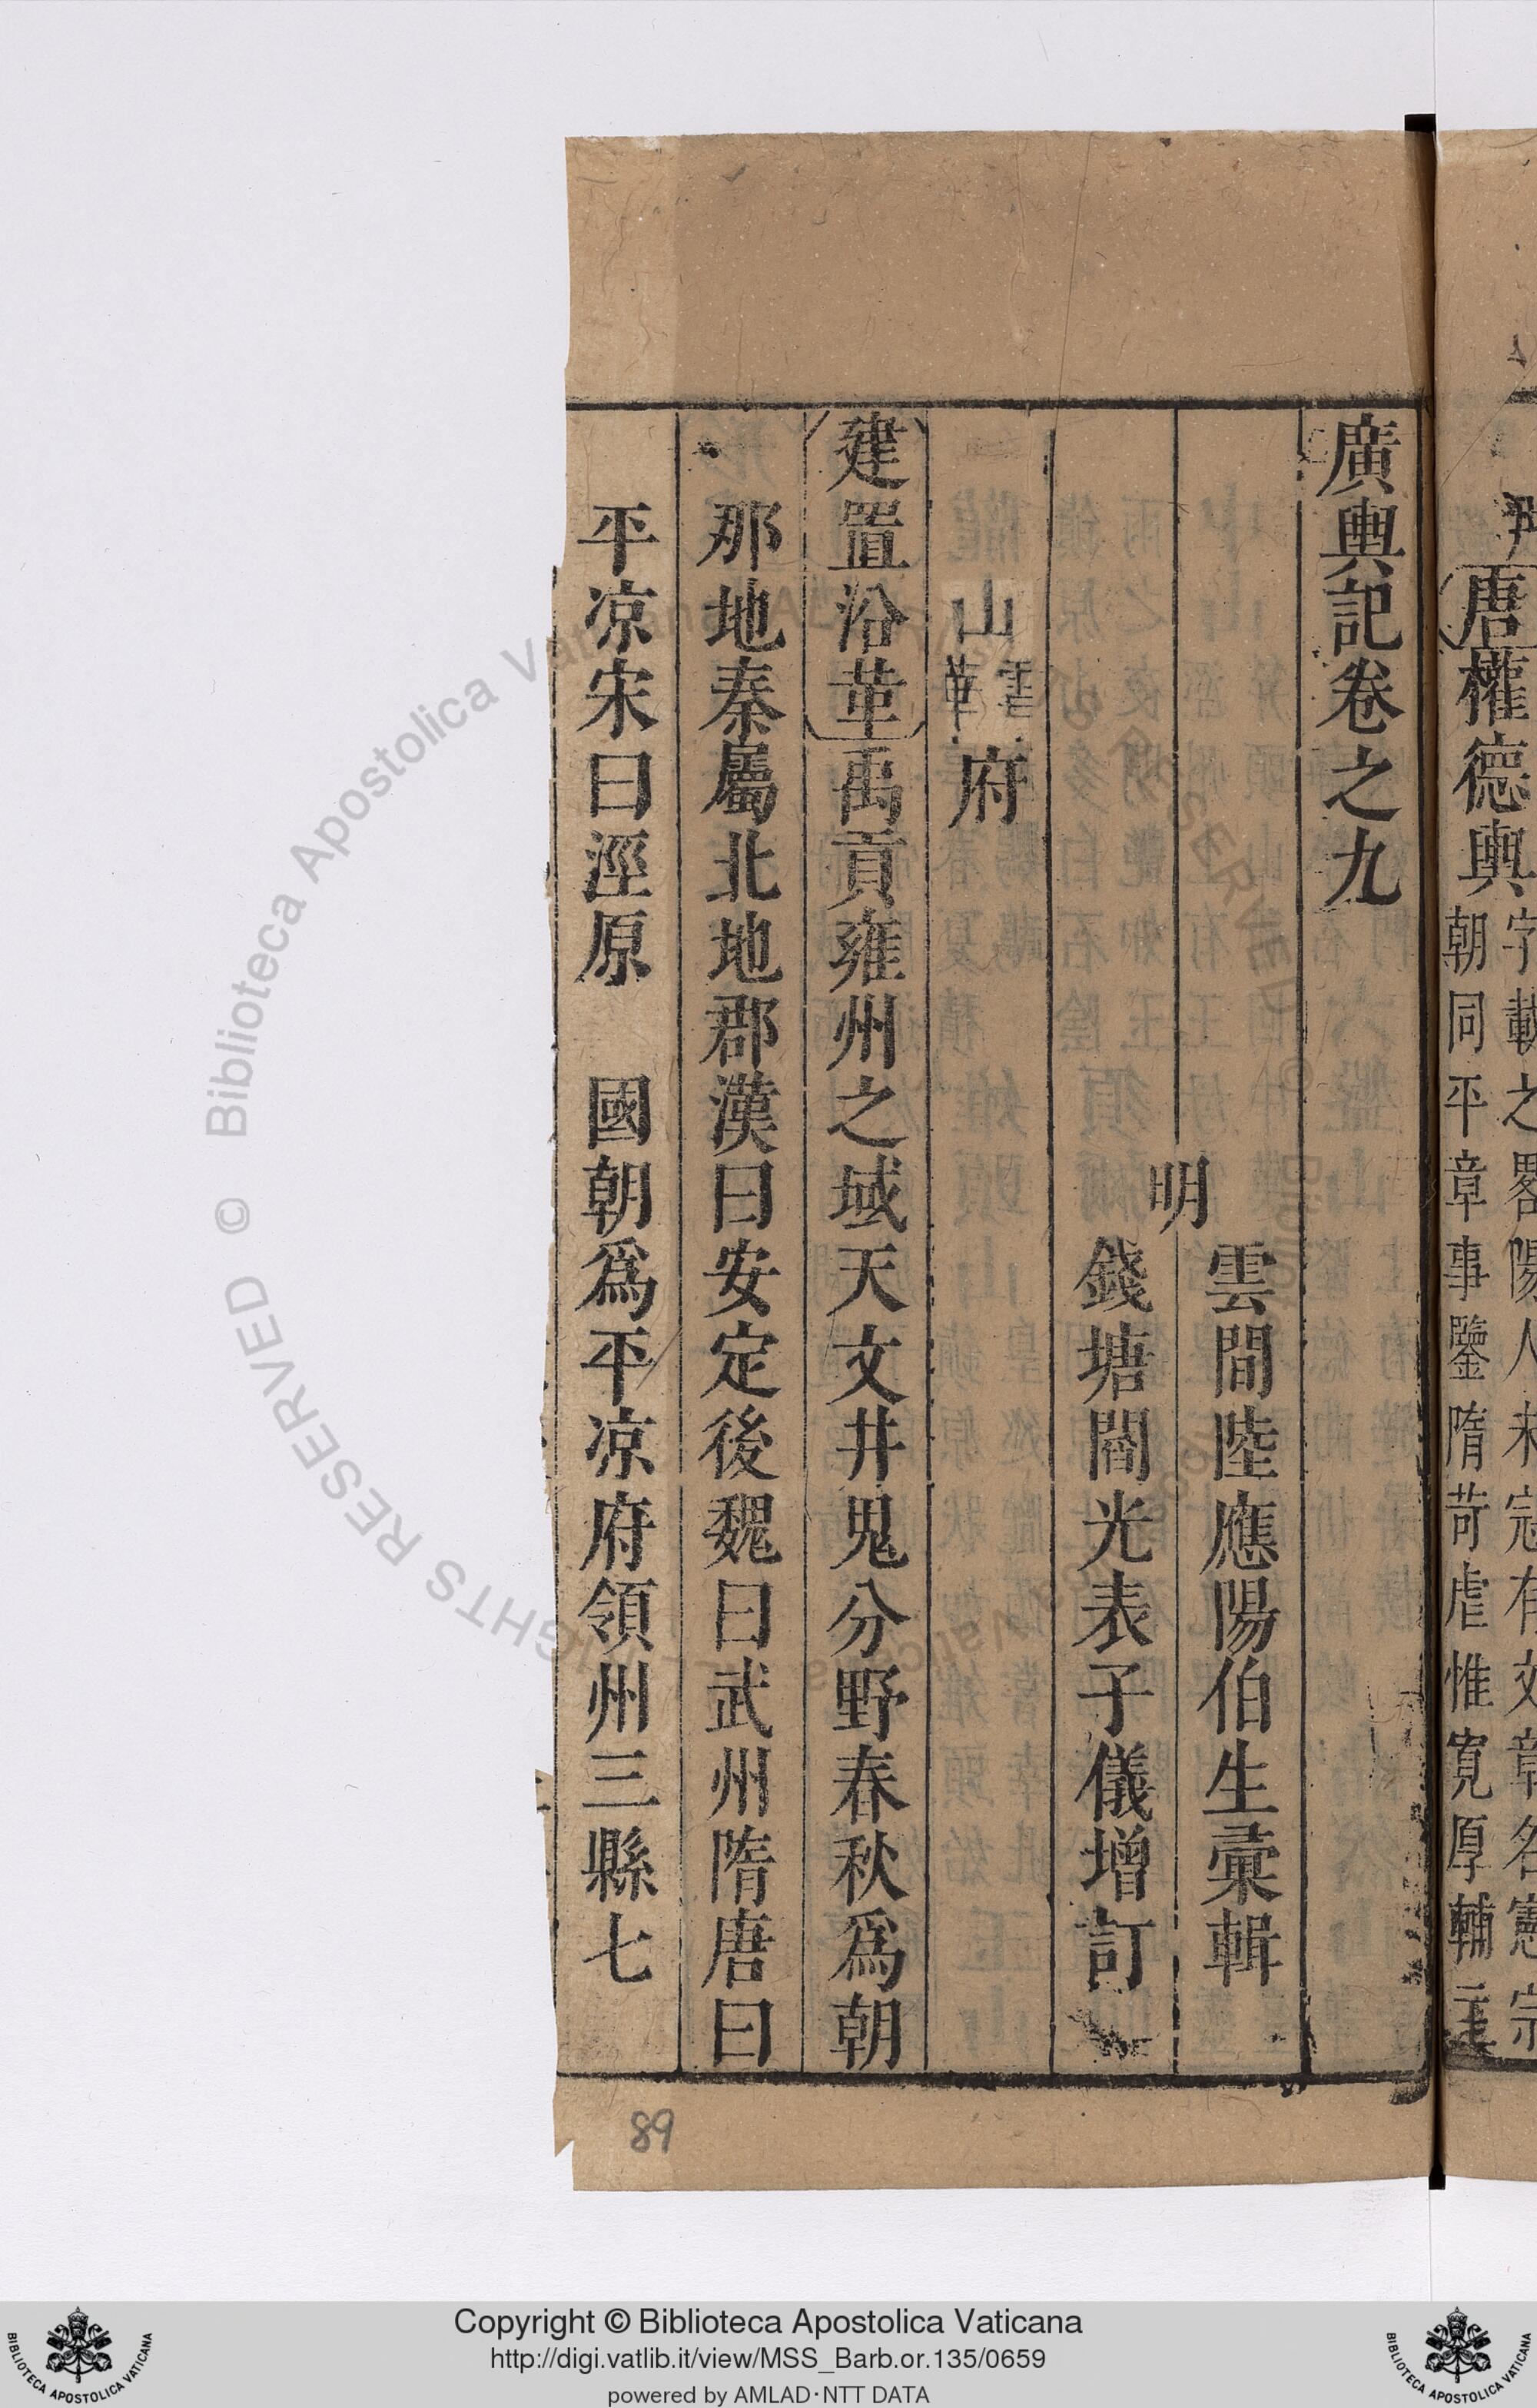 唐權德輿
廣輿記卷之九
明
雲間陸應陽伯生彙輯
錢塘閻光表子儀增訂
山
府
建置沿革禹貢雍州之域天文井鬼分野春秋爲朝
那地秦屬北地郡漢曰安定後魏曰武州隋唐曰
平凉宋曰涇原 國朝爲平凉府領州三縣七
朝同平章事鑒隋苛虐惟寬厚輔
89
© Biblioteca Apostolica Vaticana
RIGHTS RESERVED
Copyright © Biblioteca Apostolica Vaticana
http://digi.vatlib.it/view/MSS_Barb.or.135/0659
powered by AMLAD·NTT DATA
BIBLIOTECA APOSTOLICA VATICANA
BIBLIOTECA APOSTOLICA VATICANA